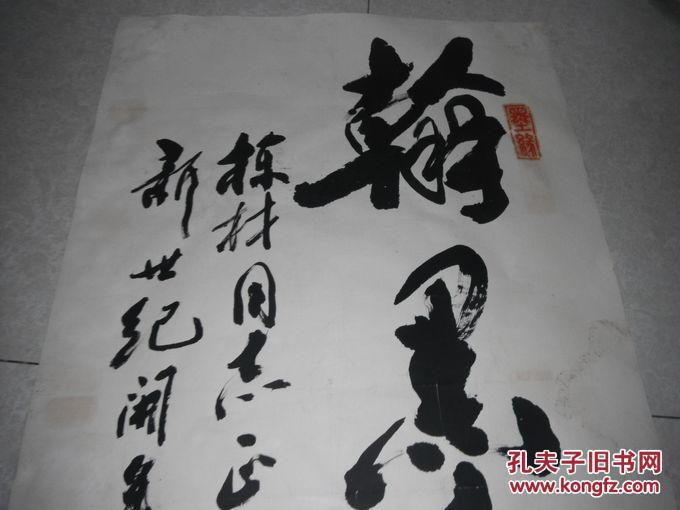 翰墨
栋材同志正
新世纪开
墨缘
孔夫子旧书网
www.kongfz.com